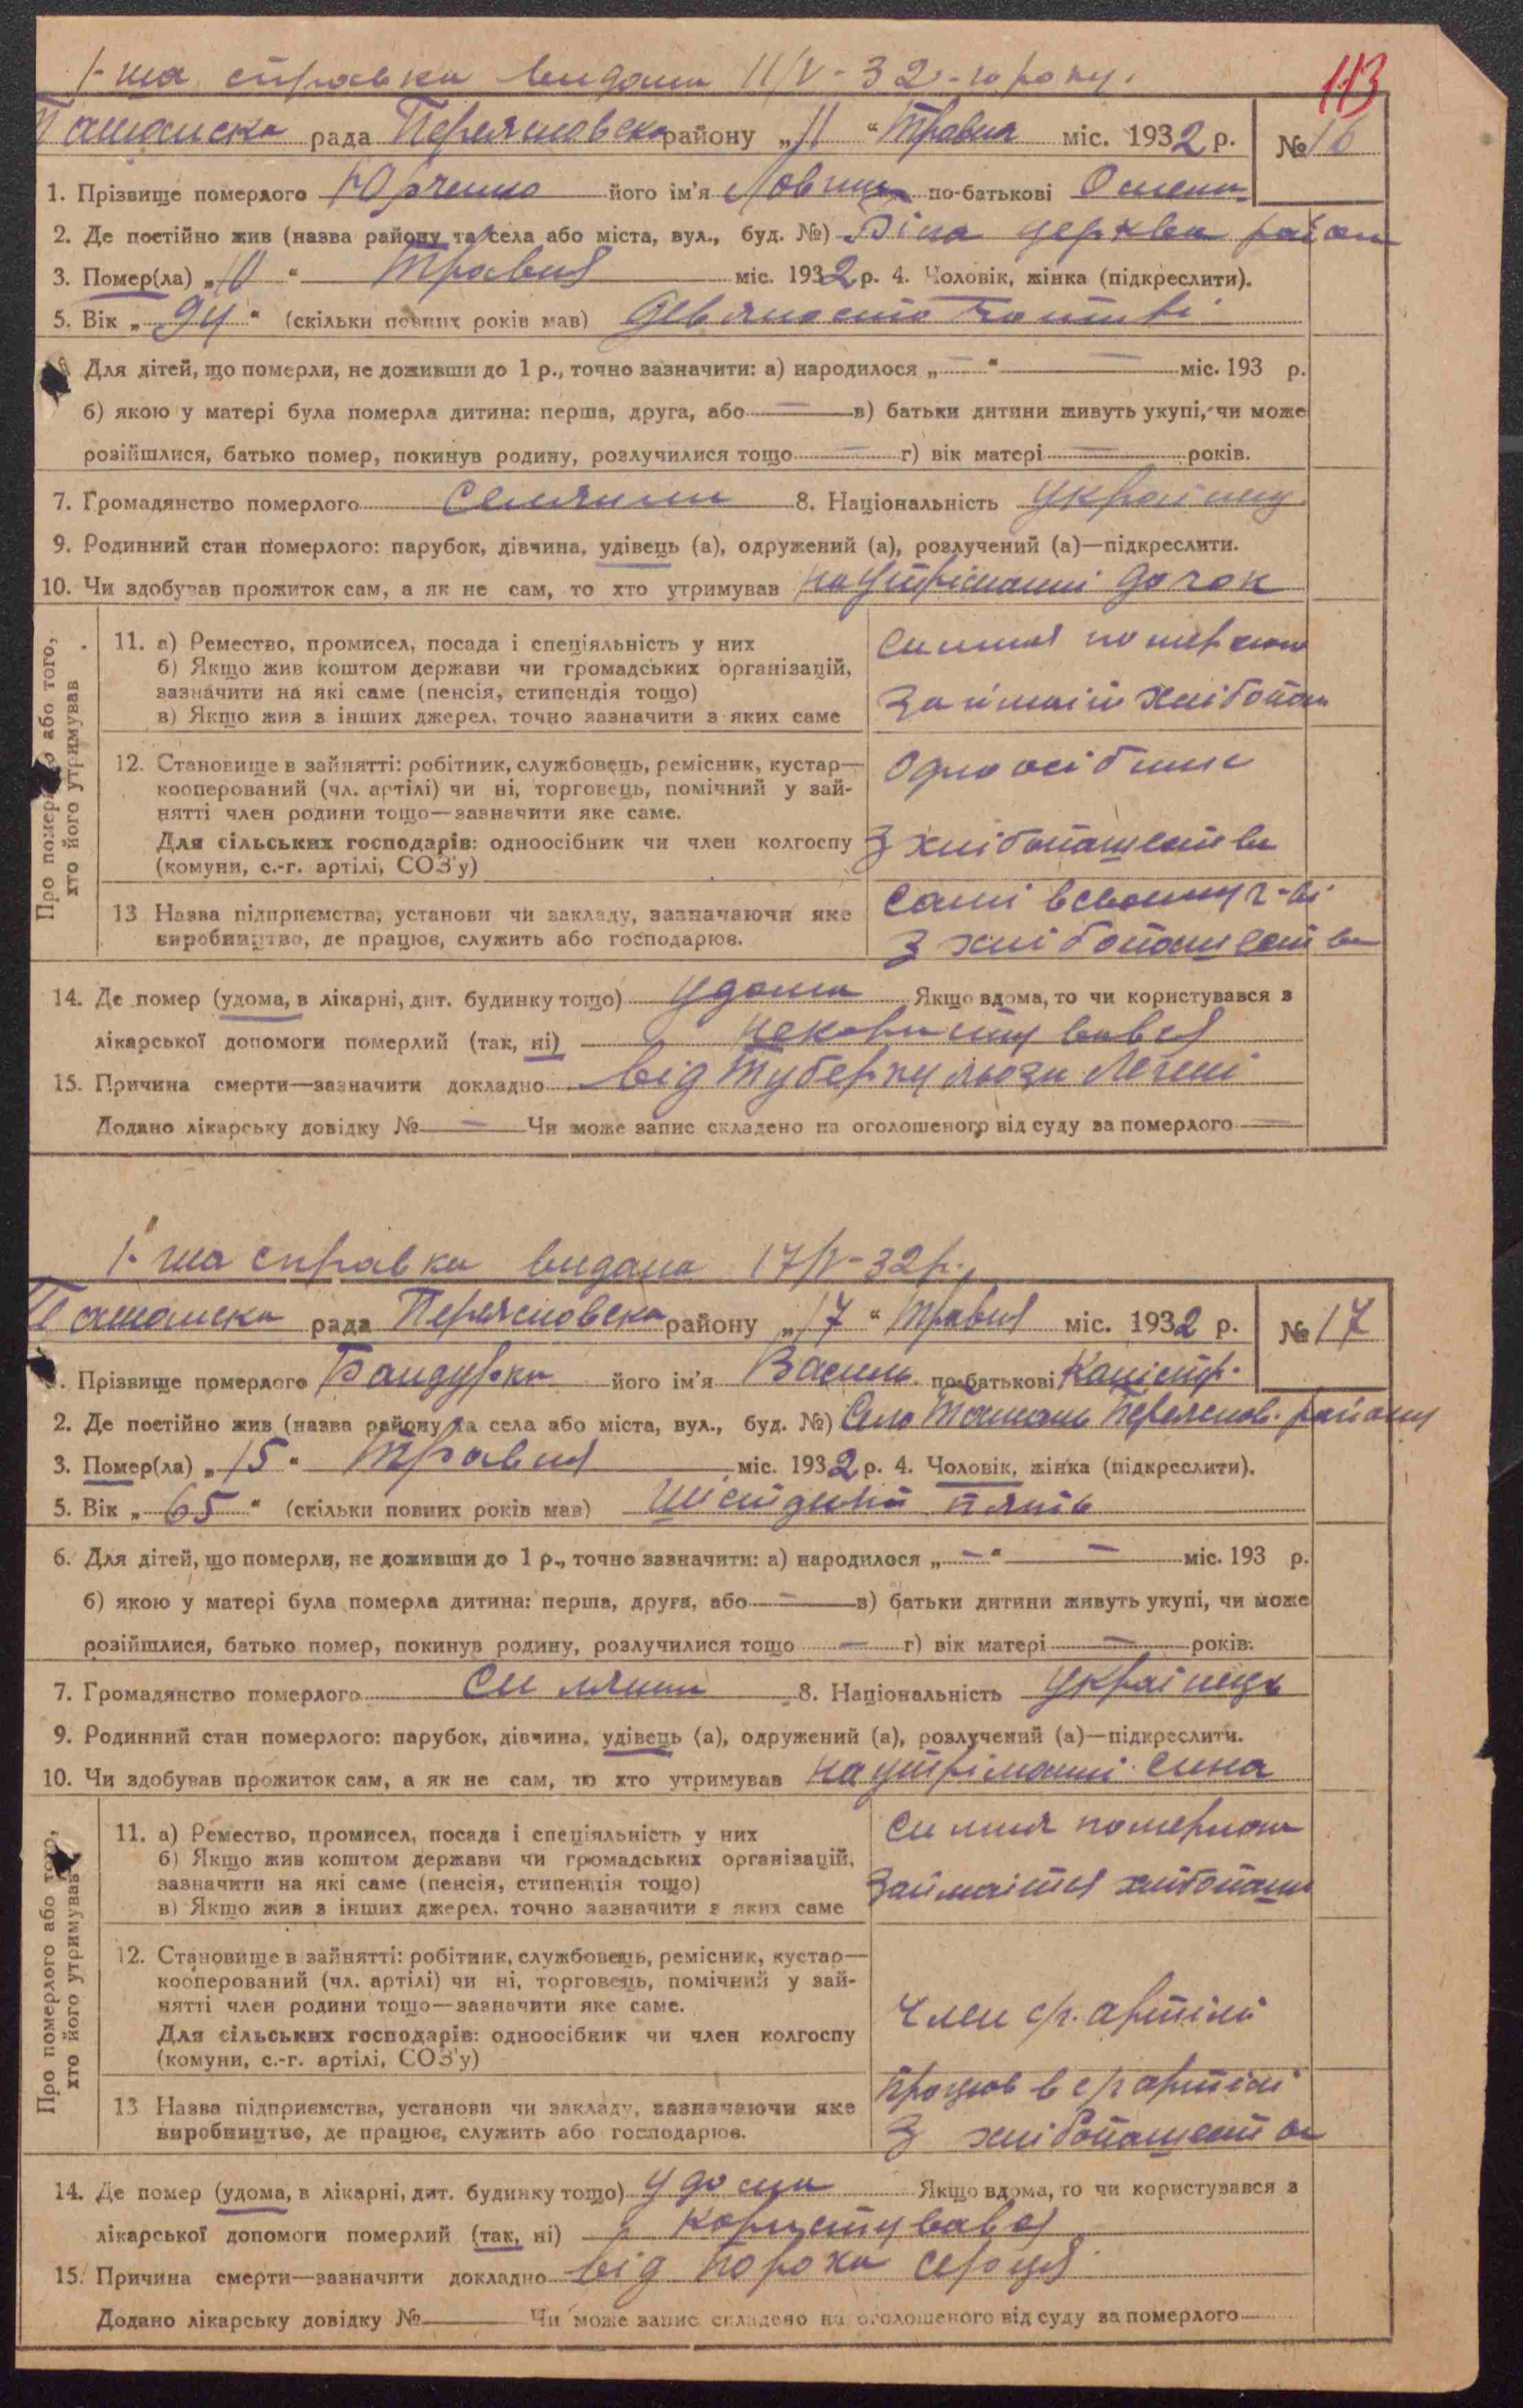 1-ша справка видана 11/V-32-го року.
113
Ташанска рада Переясловска району „11“ Травня міс. 1932 р. № 16
1. Прізвище померлого Юрченко його ім'я по-батькові
2. Де постійно жив (назва району та села або міста, вул., буд. №) Біла церква район
3. Помер(ла) „10“ Травня міс. 1932 р. 4. Чоловік, жінка (підкреслити).
5. Вік „94“ (скільки повних років мав) Девяносто
Для дітей, що померли, не доживши до 1 р., точно зазначити: а) народилося „—“ — міс. 193 р.
б) якою у матері була померла дитина: перша, друга, або — в) батьки дитини живуть укупі, чи може
розійшлися, батько помер, покинув родину, розлучилися тощо — г) вік матері — років.
7. Громадянство померлого Селянин 8. Національність
9. Родинний стан померлого: парубок, дівчина, удівець (а), одружений (а), розлучений (а)—підкреслити.
10. Чи здобував прожиток сам, а як не сам, то хто утримував на утріманні дочок
Про померлого або того, хто його утримував
11. а) Ремество, промисел, посада і спеціяльність у них
б) Якщо жив коштом держави чи громадських організацій,
зазначити на які саме (пенсія, стипендія тощо)
в) Якщо жив з інших джерел, точно зазначити з яких саме
12. Становище в зайнятті: робітник, службовець, ремісник, кустар—
кооперований (чл. артілі) чи ні, торговець, помічний у зай-
нятті член родини тощо—зазначити яке саме.
Для сільських господарів: одноосібник чи член колгоспу
(комуни, с.-г. артілі, СОЗ'у)
з хлібопашества
13 Назва підприємства, установи чи закладу, зазначаючи яке
виробництво, де працює, служить або господарює.
самі в своему г-ві
з хлібопашества
14. Де помер (удома, в лікарні, дит. будинку тощо) удома Якщо вдома, то чи користувався з
лікарської допомоги померлий (так, ні) некористувався
15. Причина смерти—зазначити докладно від туберкульоза Легені
Додано лікарську довідку № — Чи може запис складено на оголошеного від суду за померлого —
1-ша справка видана 17/V-32 р.
Ташанска рада Переясловска району „17“ Травня міс. 1932 р. № 17
Прізвище померлого Бандурка його ім'я Василь по-батькові Каністр.
2. Де постійно жив (назва району та села або міста, вул., буд. №) Село Ташань Переяслов. району
3. Помер(ла) „15“ Травня міс. 1932 р. 4. Чоловік, жінка (підкреслити).
5. Вік „65“ (скільки повних років мав) Шістдисят пять
6. Для дітей, що померли, не доживши до 1 р., точно зазначити: а) народилося „—“ — міс. 193 р.
б) якою у матері була померла дитина: перша, друга, або — в) батьки дитини живуть укупі, чи може
розійшлися, батько помер, покинув родину, розлучилися тощо — г) вік матері — років.
7. Громадянство померлого Силянин 8. Національність українець
9. Родинний стан померлого: парубок, дівчина, удівець (а), одружений (а), розлучений (а)—підкреслити.
10. Чи здобував прожиток сам, а як не сам, то хто утримував на утріманні сина
Про померлого або того, хто його утримував
11. а) Ремество, промисел, посада і спеціяльність у них
б) Якщо жив коштом держави чи громадських організацій,
зазначити на які саме (пенсія, стипендія тощо)
в) Якщо жив з інших джерел, точно зазначити з яких саме
12. Становище в зайнятті: робітник, службовець, ремісник, кустар—
кооперований (чл. артілі) чи ні, торговець, помічний у зай-
нятті член родини тощо—зазначити яке саме.
Для сільських господарів: одноосібник чи член колгоспу
(комуни, с.-г. артілі, СОЗ'у)
член с/г. артілі
13 Назва підприємства, установи чи закладу, зазначаючи яке
виробництво, де працює, служить або господарює.
працюв в с/г артілі
з хлібопашества
14. Де помер (удома, в лікарні, дит. будинку тощо) удома Якщо вдома, то чи користувався з
лікарської допомоги померлий (так, ні) користувався
15. Причина смерти—зазначити докладно від порока серця
Додано лікарську довідку № Чи може запис складено на оголошеного від суду за померлого